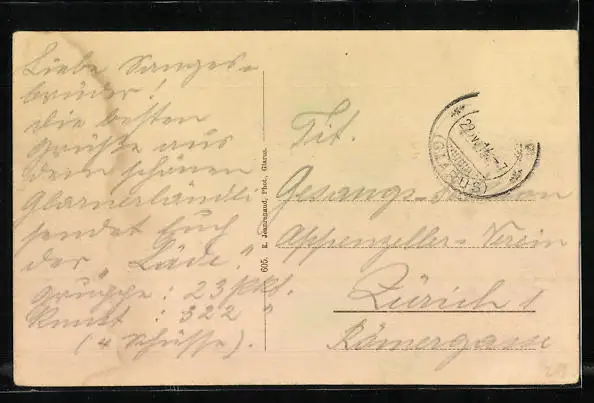 Liebe Sanges-
brüder!
Die besten
Grüße aus
dem schönen
Glarnerländli
sendet Euch
der
Gruppe: 23 Pkt.
Kunst : 322 "
(4 Schüsse).
605. E. Jeanrenaud, Phot., Glarus.
(GLARUS)
Tit.
Gesangs-
Appenzeller-Verein
Zürich 1
Römergasse